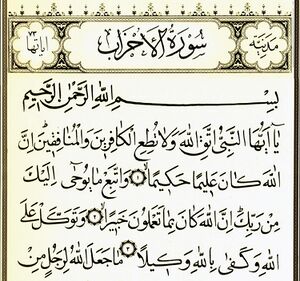 مدينة سورة الأحزاب آياتها ٧٣
بِسْمِ اللهِ الرَّحْمٰنِ الرَّحِيمِ
يَا أَيُّهَا النَّبِيُّ اتَّقِ اللهَ وَلَا تُطِعِ الْكَافِرِينَ وَالْمُنَافِقِينَ إِنَّ
اللهَ كَانَ عَلِيمًا حَكِيمًا ﴿١﴾ وَاتَّبِعْ مَا يُوحَى إِلَيْكَ
مِنْ رَبِّكَ إِنَّ اللهَ كَانَ بِمَا تَعْمَلُونَ خَبِيرًا ﴿٢﴾ وَتَوَكَّلْ عَلَى
اللهِ وَكَفَى بِاللهِ وَكِيلًا ﴿٣﴾ مَا جَعَلَ اللهُ لِرَجُلٍ مِنْ